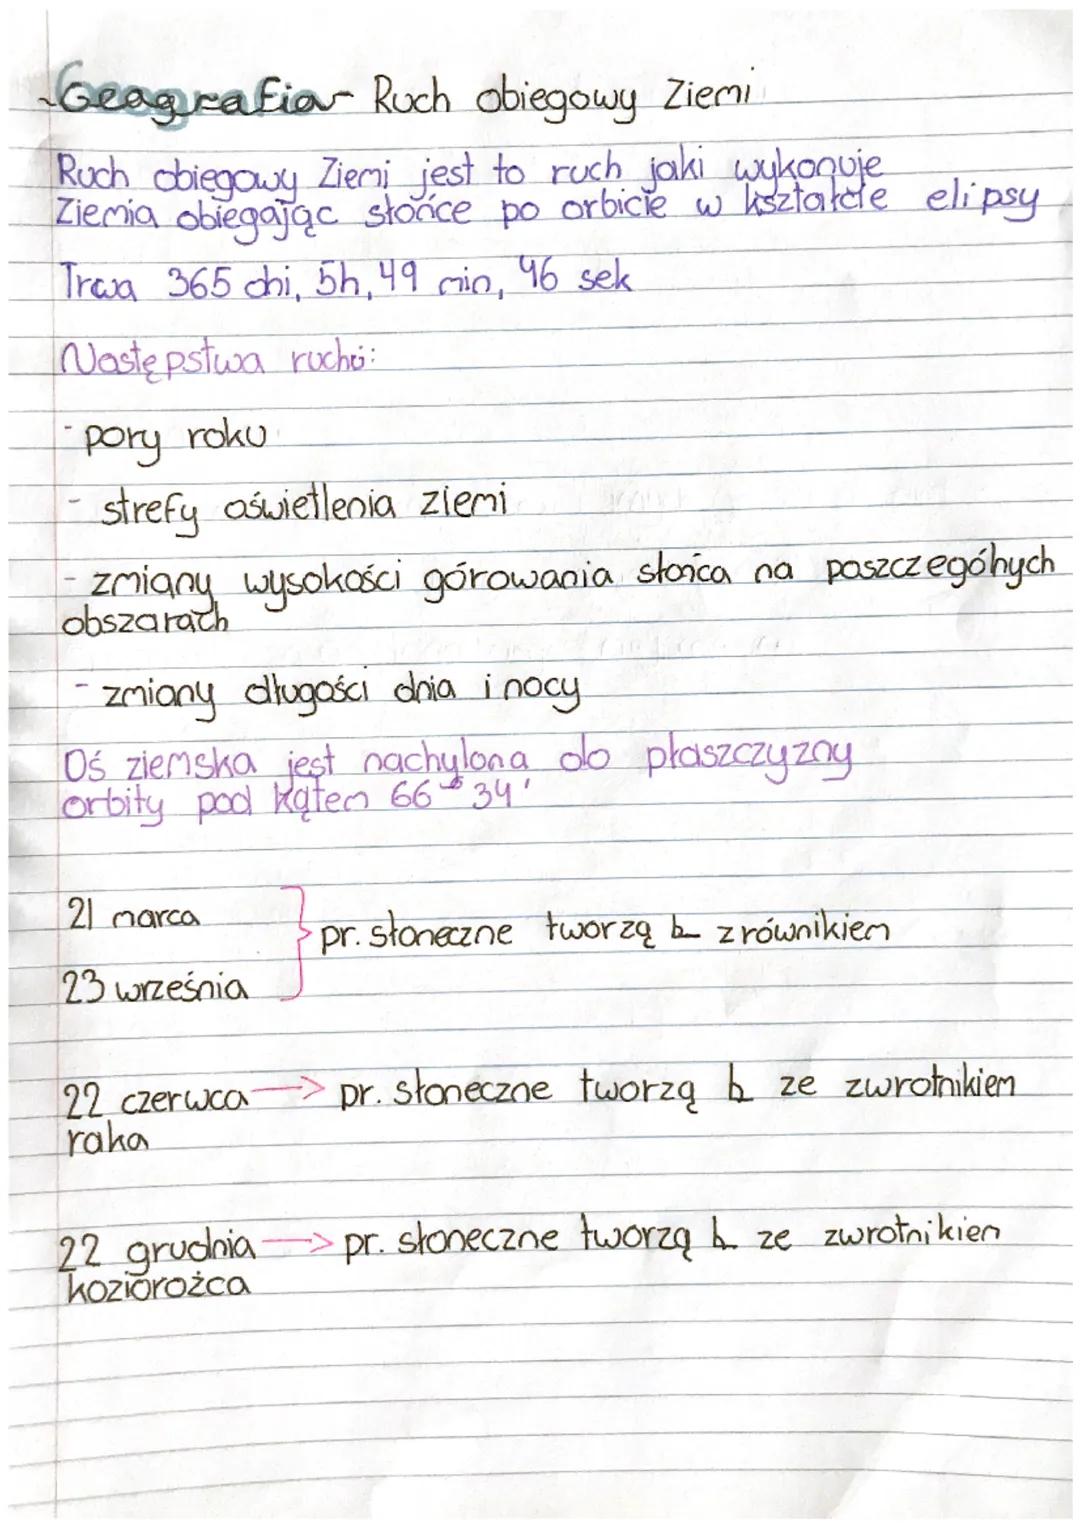 Geografia - Ruch obiegowy Ziemi
Ruch obiegowy Ziemi jest to ruch jaki wykonuje
Ziemia obiegając słońce po orbicie w kształcie elipsy
Trwa 365 dni, 5h, 49 min, 46 sek
Następstwa ruchu:
- pory roku
- strefy oświetlenia ziemi
- zmiany wysokości górowania słońca na poszczególnych
obszarach
- zmiany długości dnia i nocy
Oś ziemska jest nachylona do płaszczyzny
orbity pod kątem 66° 34'
21 marca
pr. słoneczne tworzą ⊾ z równikiem
23 września
22 czerwca → pr. słoneczne tworzą ⊾ ze zwrotnikiem
raka
22 grudnia → pr. słoneczne tworzą ⊾ ze zwrotnikiem
koziorożca